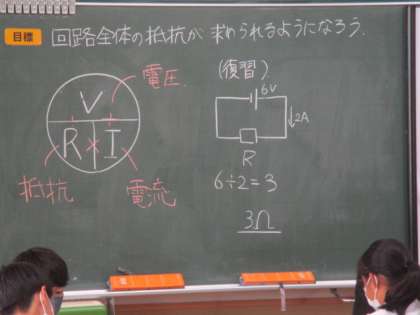 目標 回路全体の抵抗が求められるようになろう.
電圧.
V
R×I
抵抗
電流
(復習)
6V
2A
R
6÷2=3
3Ω